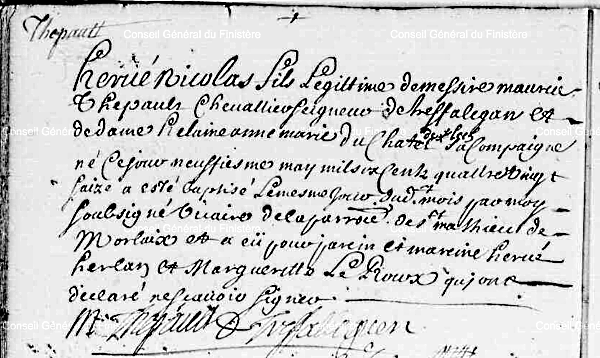 Thepault
hervé Nicolas fils Legittime de messire maurice
Thepault Chevallier seigneur de treffalegan et
de dame helaine anne marie du Chatel sa Compaigne
né Ce jour neuffiesme may mil six Centz quattre vingt
saize a esté baptisé Le mesme jour dud.t mois par moy
soubsigné vicaire de la parroi.e de s.t mathieu de
Morlaix et a eü pour parein et mareine hervé
herlan et Margueritte Le Roux qui ont
declaré ne scavoir signer
M Thepault D treffalegan
Conseil Général du Finistère